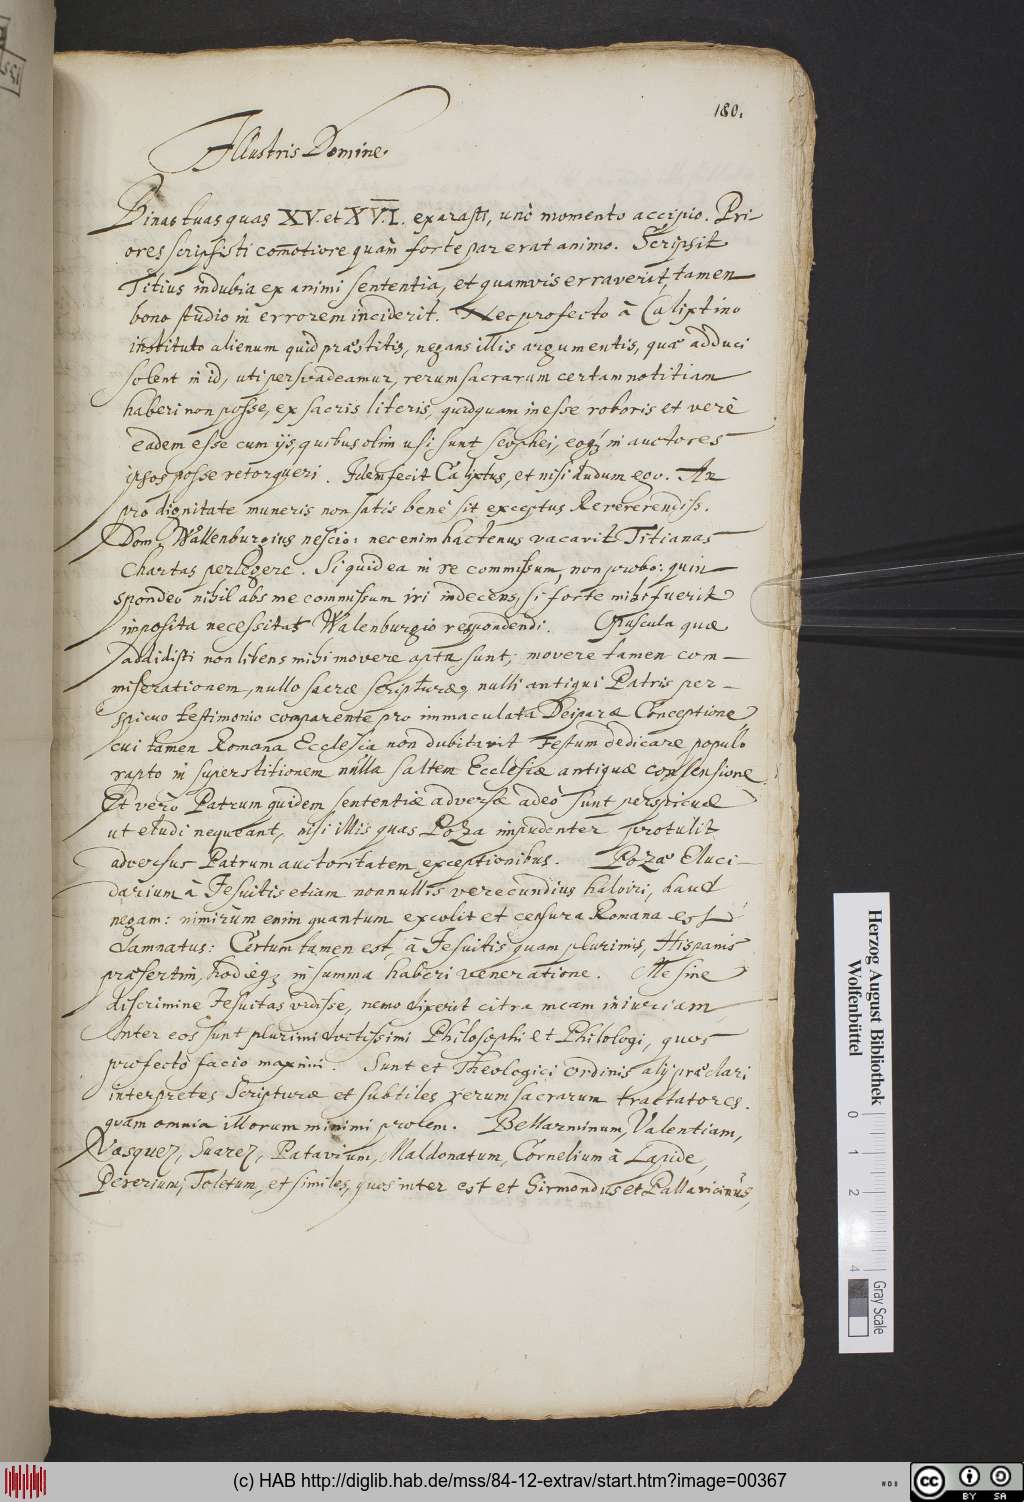 180.
Illustris Domine.
Binas tuas quas XV. et XVI. exarasti, uno momento accipio. Pri-
ores scripsisti comotiore quàm forte par erat animo. Scripsit
Titius indubia ex animi sententia, et quamvis erraverit, tamen
bono studio in errorem inciderit. Nec profecto à Calixtino
instituto alienum quid præstitit, negans illis argumentis, quæ adduci
solent in id, uti persvadeamur, rerum sacrarum certam notitiam
haberi non posse, ex sacris literis, quidquam inesse roboris et verè
eadem esse cum ijs, quibus olim usi sunt, eoq; in auctores
ipsos posse retorqueri. Idem fecit Calixtus, et nisi dudum ego. An
pro dignitate muneris non satis benè sit exceptus Reverendiss.
Dom. Wallenburgius nescio: nec enim hactenus vacavit Titianas
Chartas perlegere. Si quid ea in re commissum, non probo: quin
spondeo nihil abs me commissum iri indecens, si forte mihi fuerit
imposita necessitas Walenburgio respondendi. Opuscula quæ
addidisti non litens mihi movere apta sunt; movere tamen com-
miserationem, nullo sacræ scripturæ, nulli antiqui Patris per-
spicuo testimonio comparente pro immaculata Deiparæ Conceptione,
cui tamen Romana Ecclesia non dubitavit Festum dedicare populo
rapto in superstitionem nulla saltem Ecclesiæ antiquæ consensione.
Et verò Patrum quidem sententiæ adversæ adeò sunt perspicuæ
ut eludi nequeant, nisi illis quas Poza impudenter protulit
adversus Patrum auctoritatem exceptionibus. Pozæ Eluci-
darium à Jesuitis etiam nonnullis verecundius haberi, haud
negam: nimirum enim quantum excolit et censura Romana est
damnatus: Certum tamen est, à Jesuitis quam plurimis, Hispanis
præsertim, hodieq; in summa haberi veneratione. Me sine
discrimine Jesuitas odisse, nemo dixerit citra meam iniuriam,
Inter eos sunt plurimi doctissimi Philosophi et Philologi, quos
profectò facio maximi. Sunt et Theologici ordinis alij præclari
interpretes Scripturæ et subtiles rerum sacrarum tractatores.
quam omnia illorum minimi probem. Bellarminum, Valentiam,
Vasquez, Suarez, Patavium, Maldonatum, Cornelium à Lapide,
Pererium, Toletum, et similes, quos inter est et Sirmondus et Pallavicinus,
Herzog August Bibliothek
Wolfenbüttel
0 1 2 4
Gray Scale
(c) HAB http://diglib.hab.de/mss/84-12-extrav/start.htm?image=00367
cc BY SA